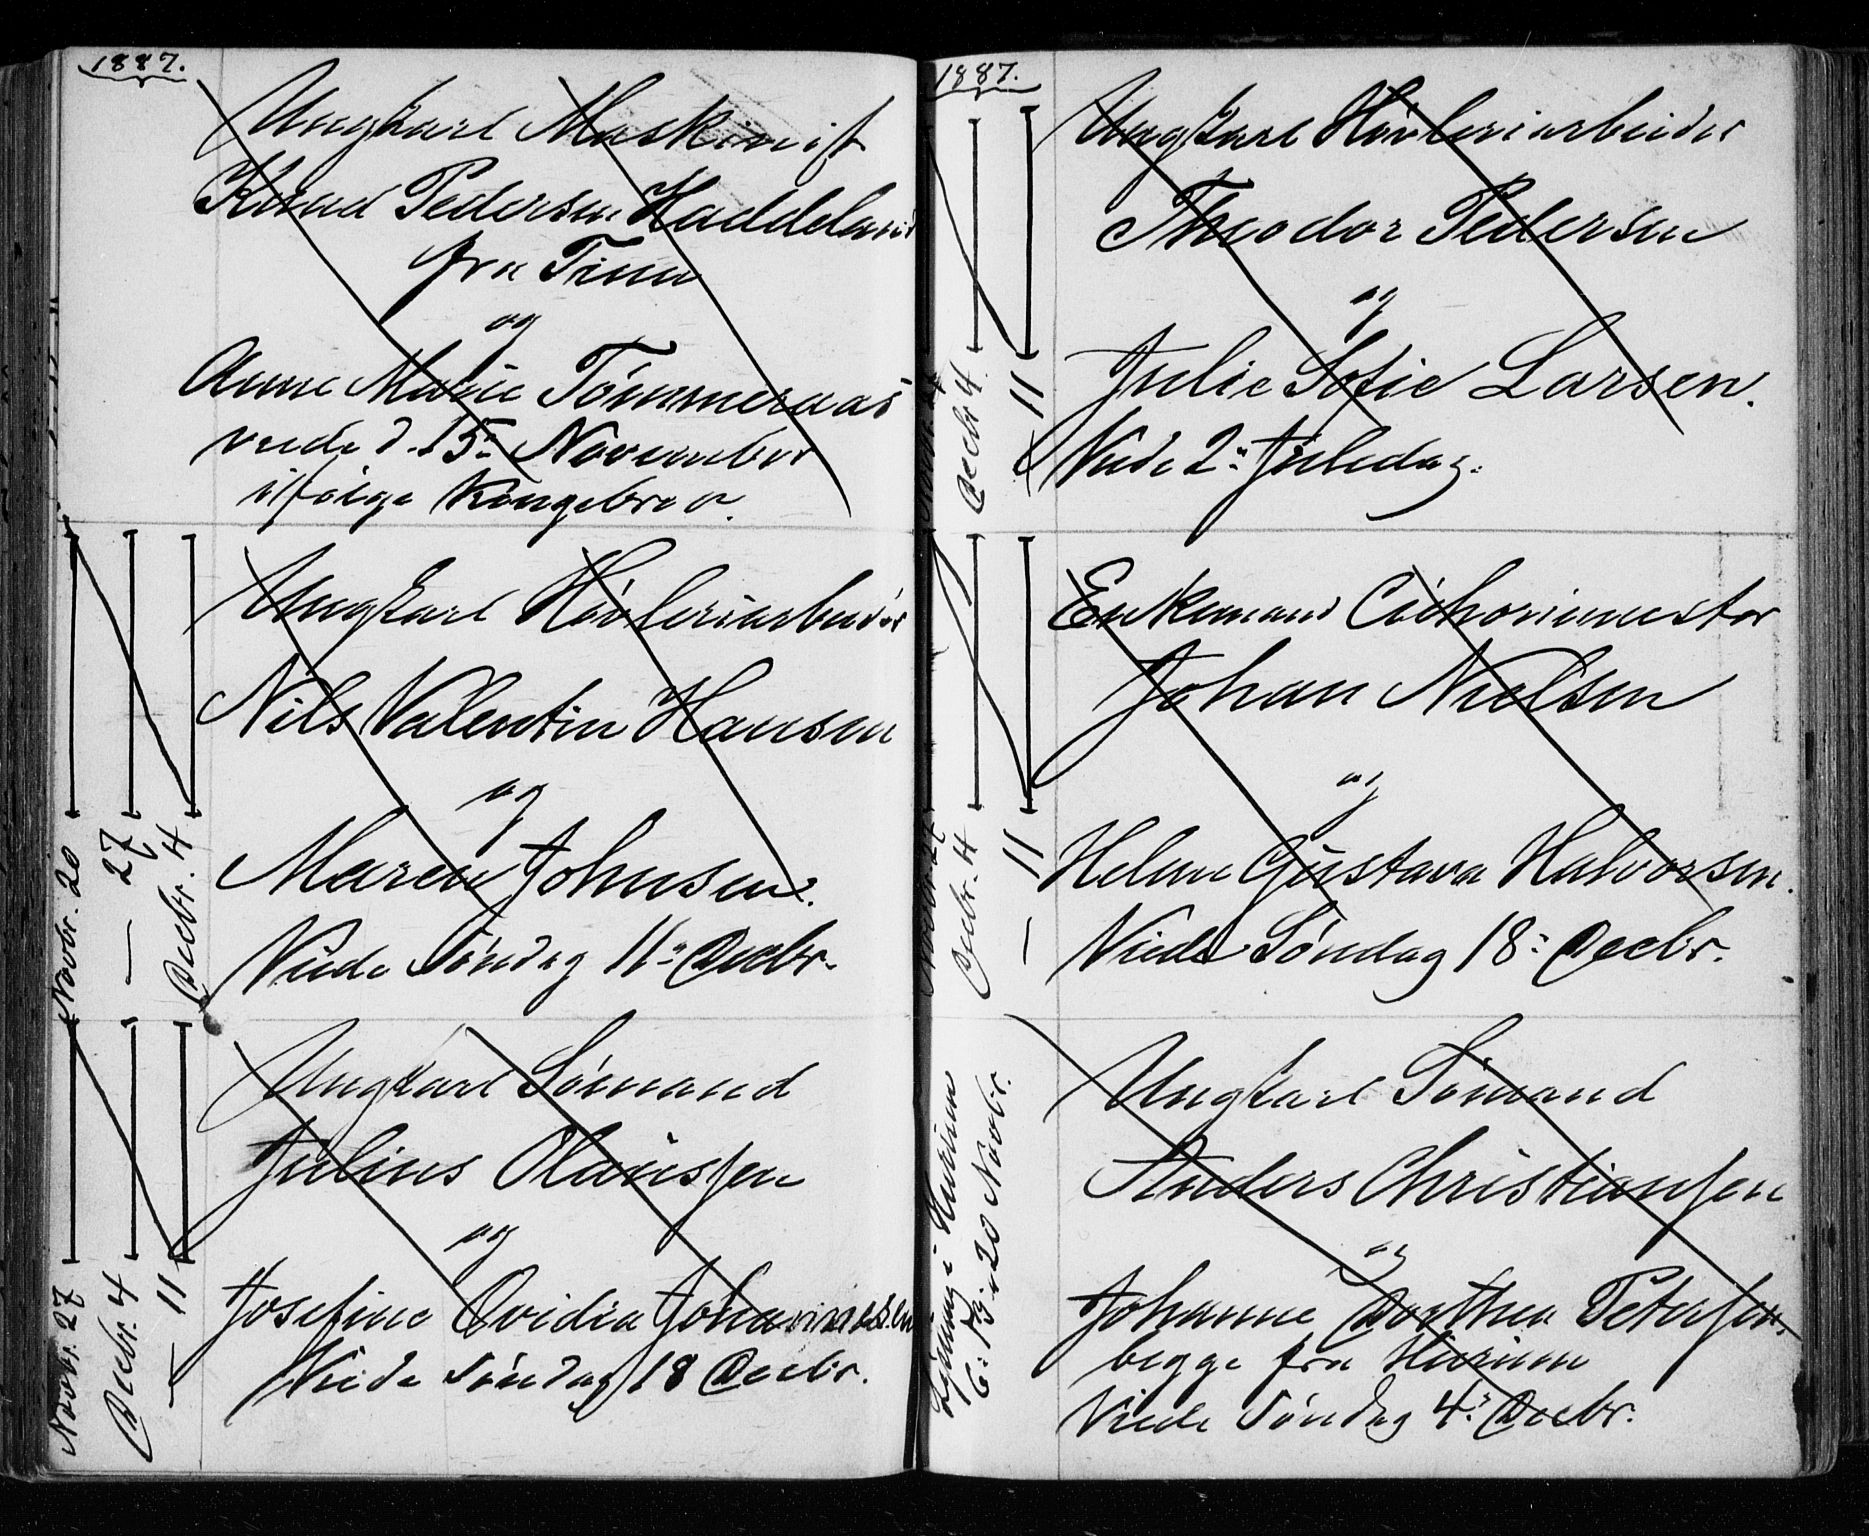 1887.
Ungkarl Maskinist
Knud Pedersen Haddeland
fra Tinn
og
Anne Marie Tömmeraas
viede d. 15: November
ifölge Kongebrev.
Novbr. 20
— 27
Decbr. 4
Ungkarl Hövleriarbeider
Nils Valentin Hansen
og
Maren Johnsen.
Viede Söndag 11: Decbr.
Novbr. 27
Decbr. 4
— 11
Ungkarl Sömand
Julius Olaussen
og
Josefine Ovidia Johannessen
Viede Söndag 18 Decbr.
1887.
Decbr 4
— 11
Ungkarl Hövleriarbeider
Theodor Pedersen
og
Julie Sofie Larsen.
Viede 2: Juledag.
Novbr 27
Decbr. 4
— 11
Enkemand Cichorimester
Johan Nielsen
og
Helene Gustava Halvorsen.
Viede Söndag 18: Decbr.
Lysning i Hurum
6: 13: 20 Novbr.
Ungkarl Sömand
Anders Christiansen
og
Johanne Dorthea Petersen.
begge fra Hurum
Viede Söndag 4: Decbr.